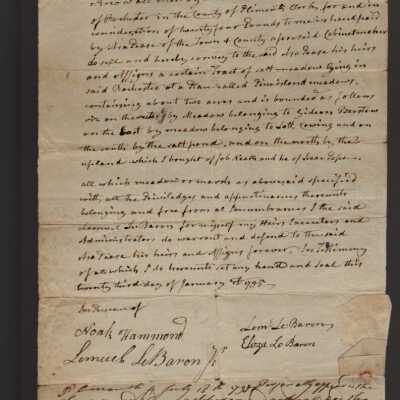 Know all men by
of Rochester in the County of Plimouth Clerk, for and in
consideration of twenty four Pounds to me in hand paid
by Asa Pease of the Town & County aforesaid Cabinetmaker
do sell and hereby convey to the said Asa Pease his heirs
and assigns a certain Tract of salt meadow lying in
said Rochester at a Place called Pine island meadows,
containing about two acres and is bounded as follows
viz on the west by Meadow belonging to Gideon Barstow
on the East by meadow belonging to Lott Cowing and on
the south by the salt pond, and on the north by the
upland which I bought of Job Keath and he of Isaac Pope
all which meadow or marsh as above said specified
with all the Priviledges and appurtenances thereunto
belonging and free from all Incumbrances I the said
Lemuel Le Baron for myself my Heirs Executors and
Administrators do warrant and defend to the said
Asa Pease his heirs and assigns forever. In Testimony
of which I do hereunto set my hand and seal this
twenty third day of January 1795
In Presence of
Noah Hammond
Lemuel LeBaron Jr
Lem. Le Baron
Eliza Le Baron
July 18th